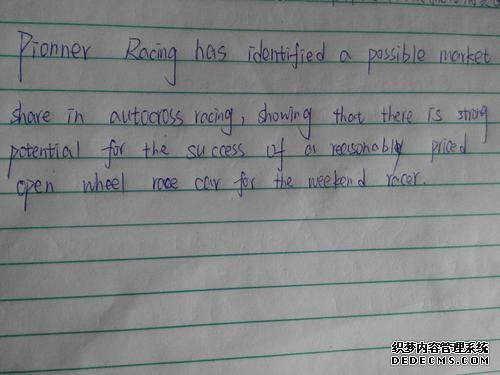 Pionner Racing has identified a possible market
share in autocross racing, showing that there is strong
potential for the success of a reasonably priced
open wheel race car for the weekend racer.
织梦内容管理系统
DEDECMS.COM